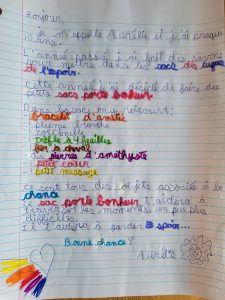 Bonjour,
Je m'appelle Aurélie et j'ai presque
10 ans.
L'année passée, j'ai fait des savons
pour mettre dans les sacs des anges
de l'espoir.
Cette année j'ai décidé de faire des
petits sacs porte bonheur.
Dans le sac on y retrouve:
bracelet d'amitié
plume blanche
coccinelle
trèfle à 4 feuilles
fer à cheval
pierre d'améthyste
petit cœur
petit message
Ce sont tous des objets associés à la
chance
Le sac porte bonheur t'aidera à
les moments un peu plus
difficiles.
Il t'aidera à garder espoir...
Bonne chance!
Aurélie